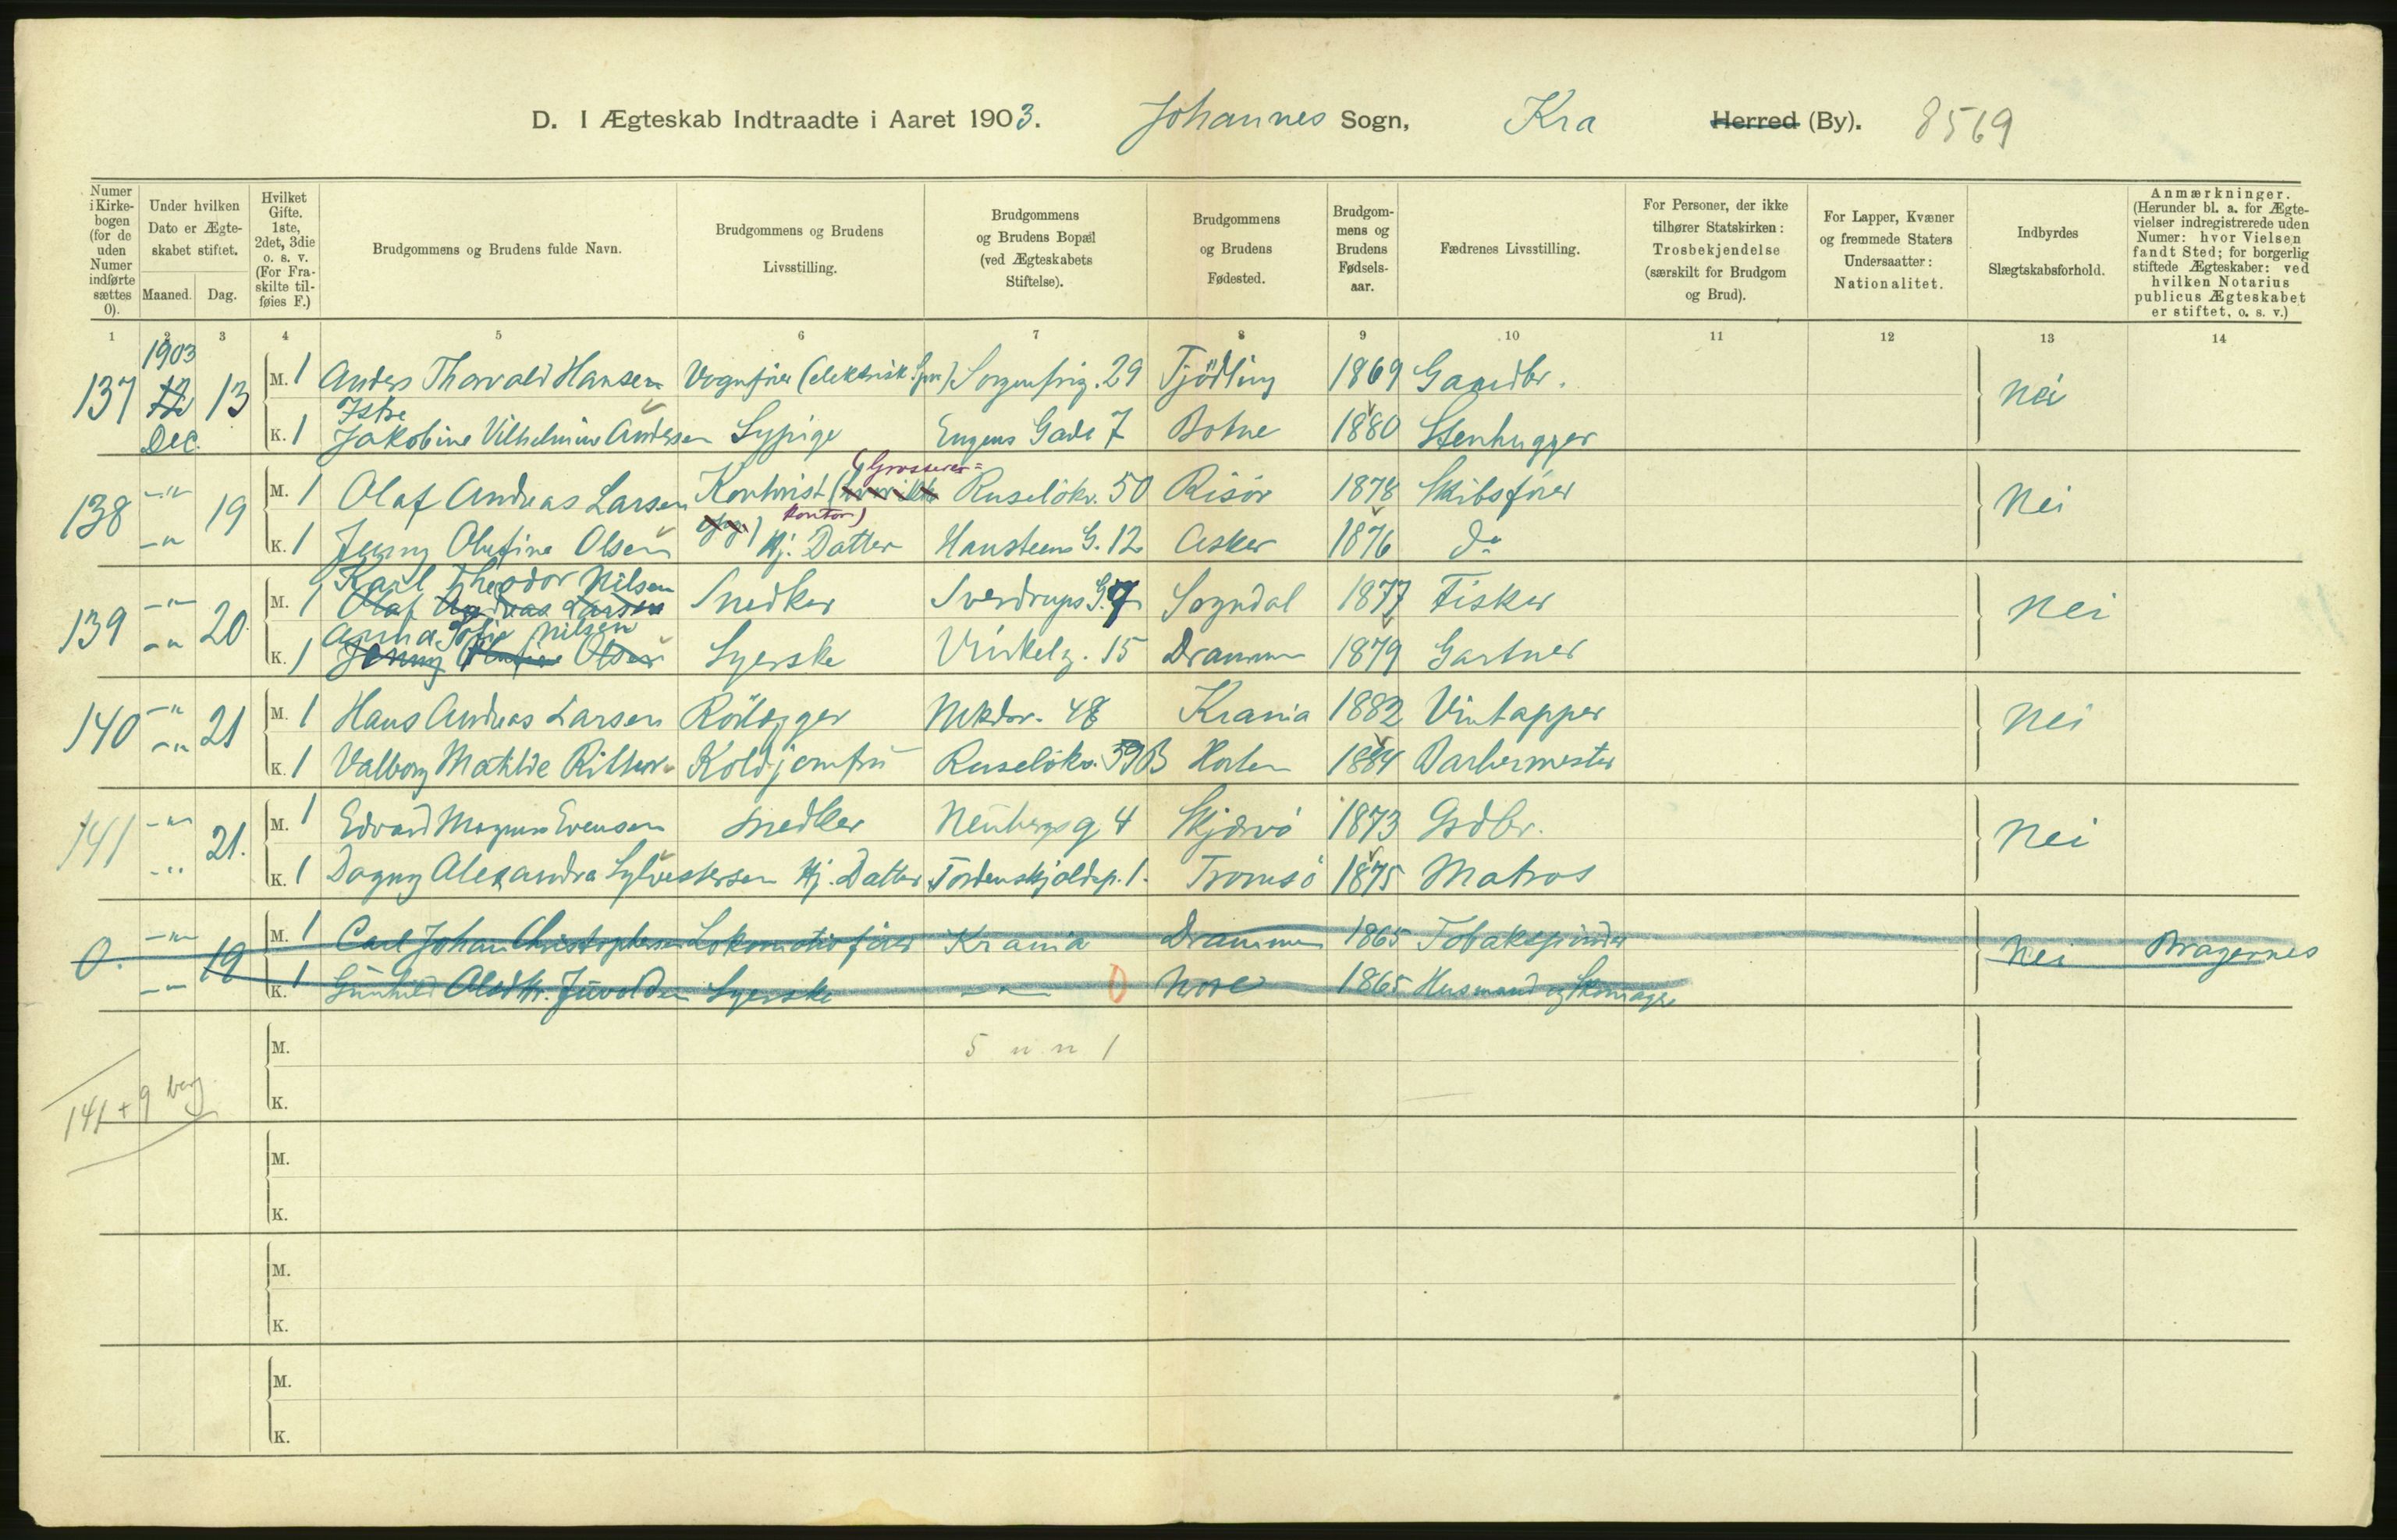 D. I Ægteskab Indtraadte i Aaret 1903. Johannes Sogn, Kra Herred (By). 8569
Numer i Kirkebogen (for de uden Numer indførte sættes 0).
Under hvilken Dato er Ægteskabet stiftet.
Maaned. Dag.
Hvilket Gifte. 1ste, 2det, 3die o. s. v. (For Fraskilte tilføies F.)
Brudgommens og Brudens fulde Navn.
Brudgommens og Brudens Livsstilling.
Brudgommens og Brudens Bopæl (ved Ægteskabets Stiftelse).
Brudgommens og Brudens Fødested.
Brudgommens og Brudens Fødselsaar.
Fædrenes Livsstilling.
For Personer, der ikke tilhører Statskirken: Trosbekjendelse (særskilt for Brudgom og Brud).
For Lapper, Kvæner og fremmede Staters Undersaatter: Nationalitet.
Indbyrdes Slægtskabsforhold.
Anmærkninger. (Herunder bl. a. for Ægtevielser indregistrerede uden Numer: hvor Vielsen fandt Sted; for borgerlig stiftede Ægteskaber: ved hvilken Notarius publicus Ægteskabet er stiftet, o. s. v.)
1 2 3 4 5 6 7 8 9 10 11 12 13 14
1903
137 12 13 M. 1 Anders Thorvald Hansen Vognfører (elektrisk Spv) Sorgenfrig. 29 Tjödling 1869 Gaardbr. Nei
Istre
Dec. K. 1 Jakobine Vilhelmine Andersen Sypige Eugens Gade 7 Botne 1880 Stenhugger
(Grosserer=
138 -"- 19 M. 1 Olaf Andreas Larsen Kontorist Ruselökv. 50 Risör 1878 Skibsfører Nei
kontor)
-"- K. 1 Jenny Olufine Olsen Hj. Datter Hansteens G. 12 Asker 1876 do
Karl Theodor Nilsen
139 -"- 20 M. 1 Olaf Andreas Larsen Snedker Sverdrups G. 7 Sogndal 1877 Fisker Nei
Anna Sofie Nilsen
-"- K. 1 Jenny Olufine Olsen Syerske Vinkelg. 15 Drammen 1879 Gartner
140 -"- 21 M. 1 Hans Andreas Larsen Rörlægger Mekdov. 48 Krania 1882 Vintapper Nei
-"- K. 1 Valborg Matilde Ritter Koldjomfru Ruselökv. 59B Horten 1884 Barbermester
141 -"- 21. M. 1 Edvard Magnus Evensen Snedker Neubergs g 4 Skjærvö 1873 Grdbr. Nei
-"- K. 1 Dagny Alexandra Sylvestersen Hj. Datter Tordenskjoldsp. 1. Tromsö 1875 Matros
0. -"- 19 M. 1 Carl Johan Christophersen Lokomotivfører Krania Drammen 1865 Tobakspinder Nei Bragernes
-"- K. 1 Gunhild Olsdtr. Juvelden Syerske -"- 0 Nore 1865 Husmand og Skomager
M. 5 n n 1
141 + 9 borg K.
M.
K.
M.
K.
M.
K.